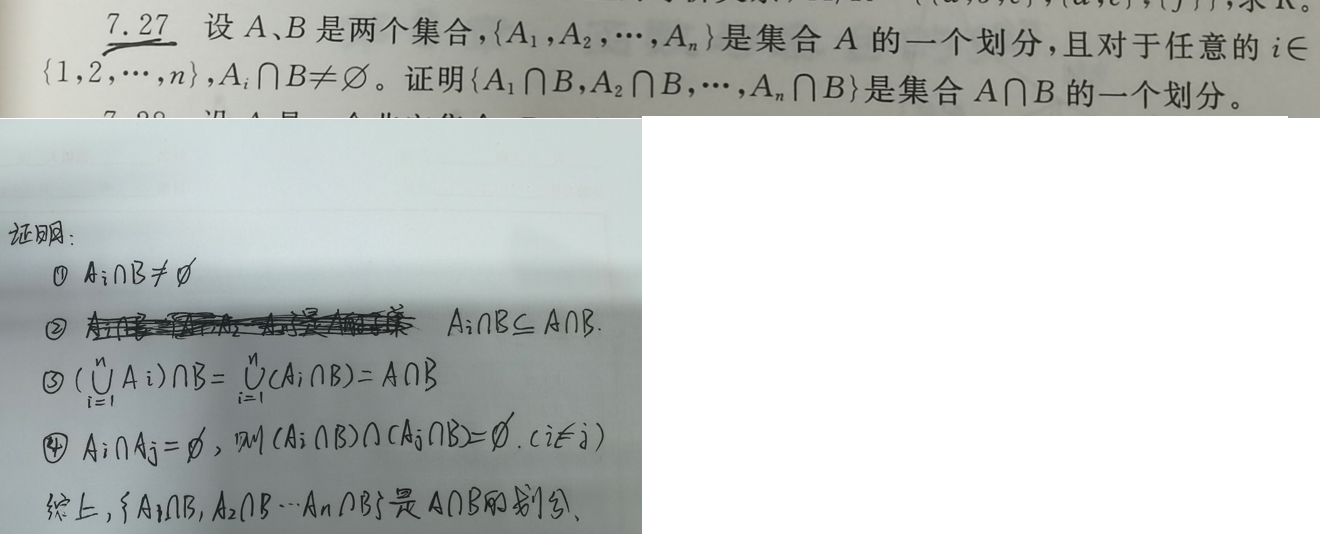 7.27 设 A、B 是两个集合,{A₁,A₂,⋯,Aₙ}是集合 A 的一个划分,且对于任意的 i∈
{1,2,⋯,n},Aᵢ∩B≠∅。证明{A₁∩B,A₂∩B,⋯,Aₙ∩B}是集合 A∩B 的一个划分。
证明:
① Aᵢ∩B≠∅
② Aᵢ∩B⊆A∩B.
③ (⋃ⁿᵢ₌₁Aᵢ)∩B=⋃ⁿᵢ₌₁(Aᵢ∩B)=A∩B
④ Aᵢ∩Aⱼ=∅,则(Aᵢ∩B)∩(Aⱼ∩B)=∅.(i≠j)
综上,{A₁∩B,A₂∩B⋯Aₙ∩B}是A∩B的划分、